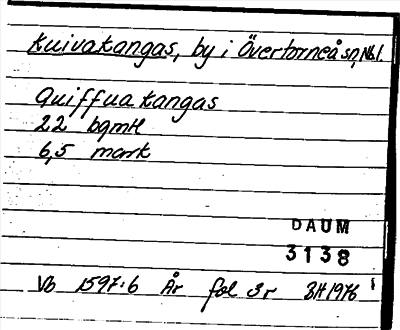 Kuivakangas, by i Övertorneå sn, Nb.l.
Quiffuakangas
22 bgmtl
6,5 mark
DAUM
3138
Vb 1597:6 År fol 3r BH 1976